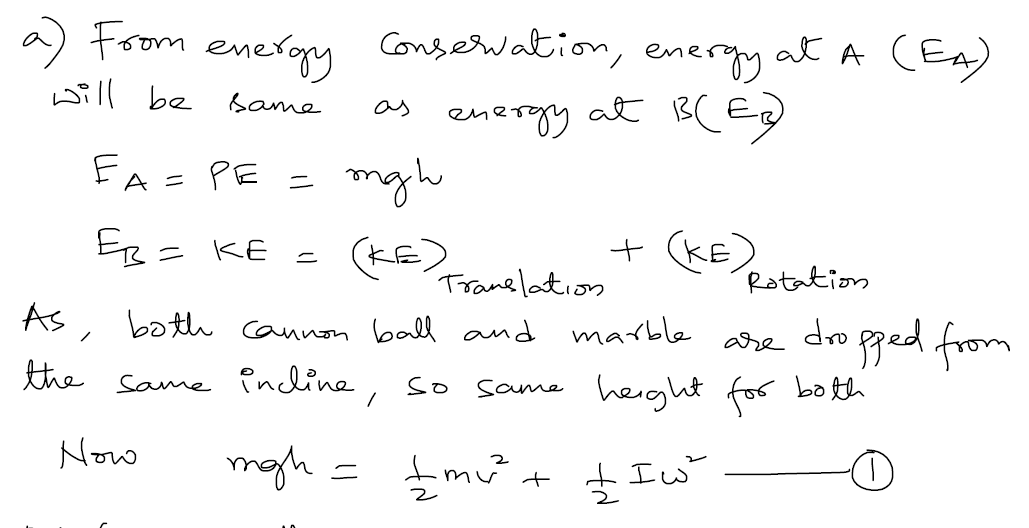 a) From energy conservation, energy at A (E_A)
will be same as energy at B(E_B)
E_A = PE = mgh
E_B = KE = (KE)_Translation + (KE)_Rotation
As, both cannon ball and marble are dropped from
the same incline, so same height for both
Now mgh = 1/2 mv² + 1/2 Iω² ——— ①